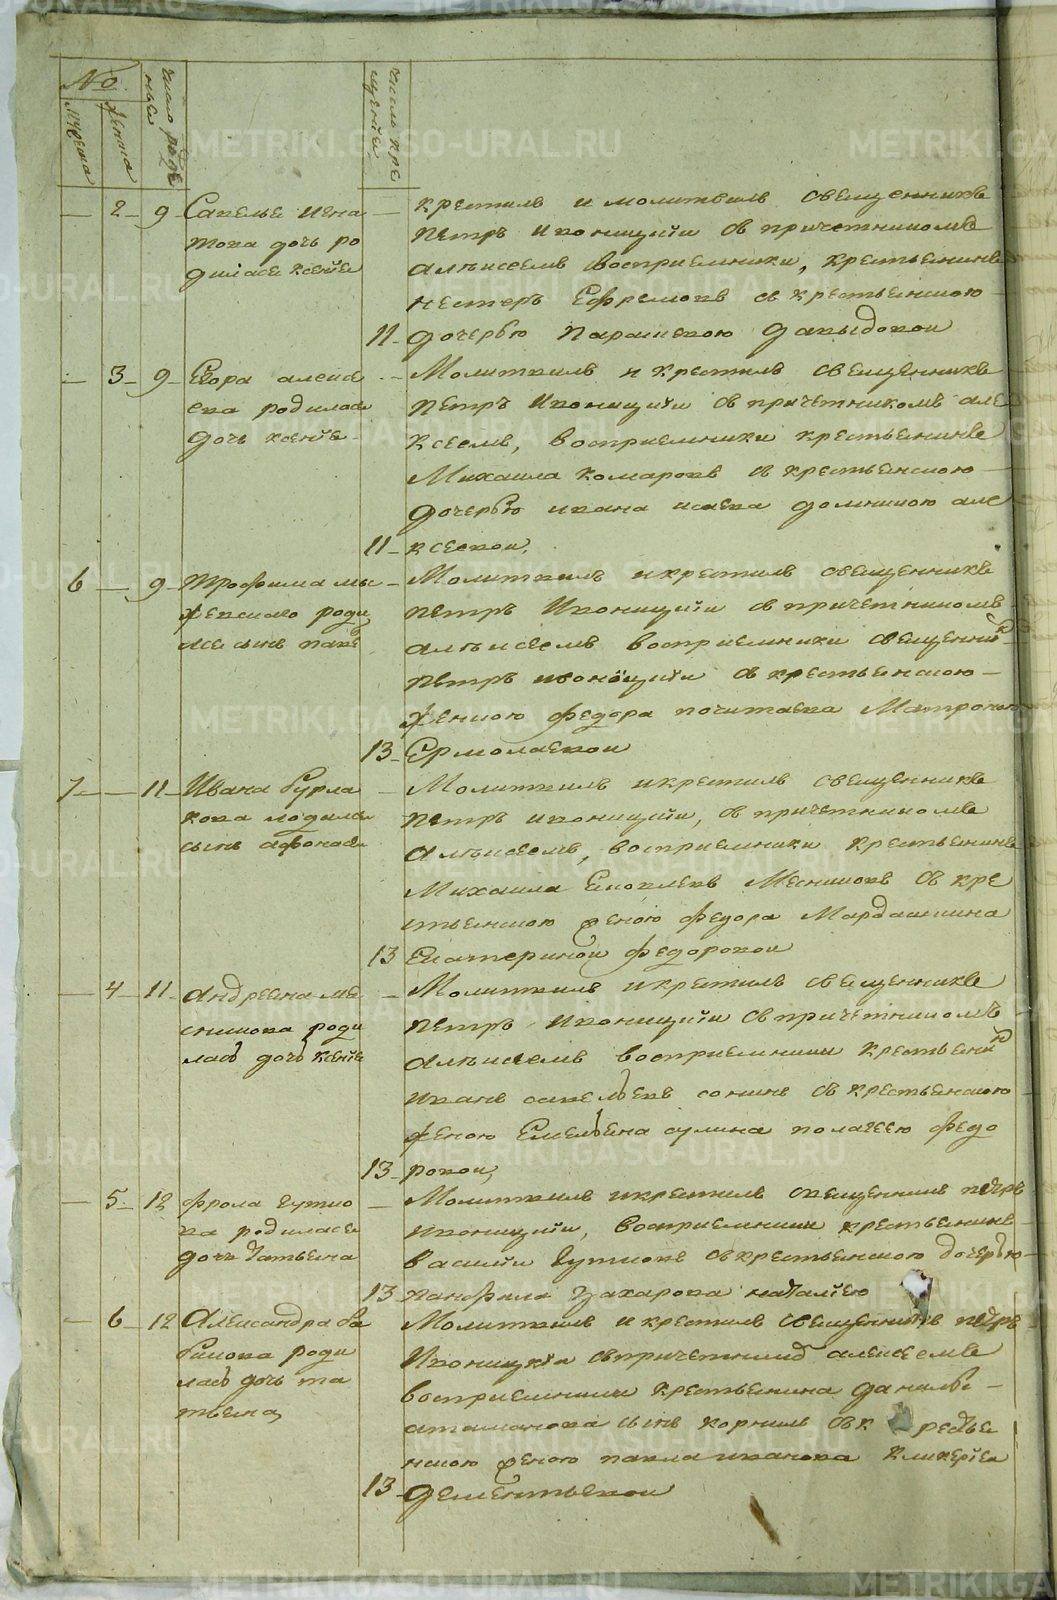 №
Число рожде
ниев
число кре
щения
мужеска
женска
2 9 Савелье Игна
това дочь ро
дилась ксения
крестилъ и молитвилъ священникъ
петръ Иконицкий съ причетникомъ
алексеемъ восприемники, крестьянинъ
нестеръ Ефремовъ съ крестьянскою
11 дочерью парасковою давыдовои
3 9 Егора алексе
ева родилась
дочь ксения
Молитвилъ и крестилъ священникъ
петръ Иконицкий съ причетникомъ але
ксеемъ, восприемники крестьянинъ
Михаила комаровъ съ крестьянскою
дочерью ивана исаева домникою але
11 ксеевои,
6 9 трофима
родил
ся сынъ павел
Молитвилъ и крестилъ священникъ
петръ Иконицкий съ причетникомъ
алексеемъ восприемники священник
петръ иконицкий съ крестьянскою
женкою федора почитаева Матроною
13 Ермолаевои
7 11 Ивана Бурла
кова родился
сынъ афонасей
Молитвилъ и крестилъ священникъ
петръ иконицкий, съ причетникомъ
алексеемъ, восприемники крестьянинъ
Михаила Яковлевъ съ кре
стьянскою женою федора Мардашкина
13 Екатериной федоровои
4 11 андреяна ме
сникова роди
лась дочь ксения
Молитвилъ и крестилъ священникъ
петръ Иконицкий съ причетникомъ
алексеемъ восприемники крестьянин
иванъ савельевъ сонинъ съ крестьянскою
женою Емельяна сулина пелагеею федо
13 ровои,
5 12 фрола гуткo
ва родилась
дочь татьяна
Молитвилъ и крестилъ священникъ петръ
иконицкий, восприемники крестьянинъ
василий гутковъ съ крестьянскою дочерью
13 панфила захарова наталиею
6 12 Александра ба
бикова роди
лась дочь та
тьяна,
Молитвилъ и крестилъ священникъ петръ
Иконицкий съ причетником алексеемъ
восприемники крестьянина данилы
атаманова сынъ корнилъ съ к рестья
нскою женою павла иванова Гликерiея
13 дементьевои